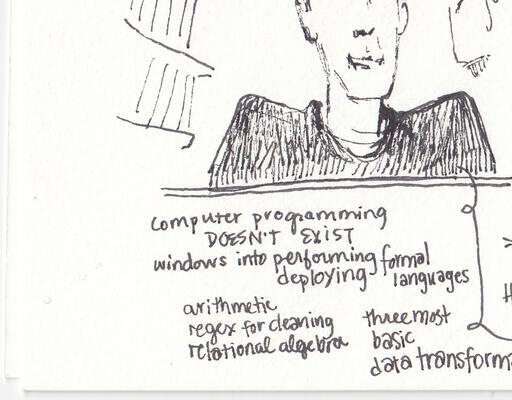 computer programming
DOESN'T EXIST
windows into performing formal
deploying languages
arithmetic
regex for cleaning
relational algebra
three most
basic
data transforma